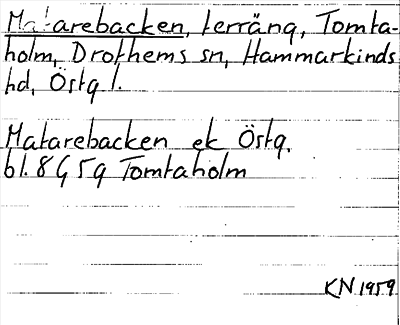 Matarebacken, terräng, Tomta-
holm, Drothems sn, Hammarkinds
hd, Östg l.
Matarebacken ek Östg.
bl. 8 G 5 g Tomtaholm
KN 1959